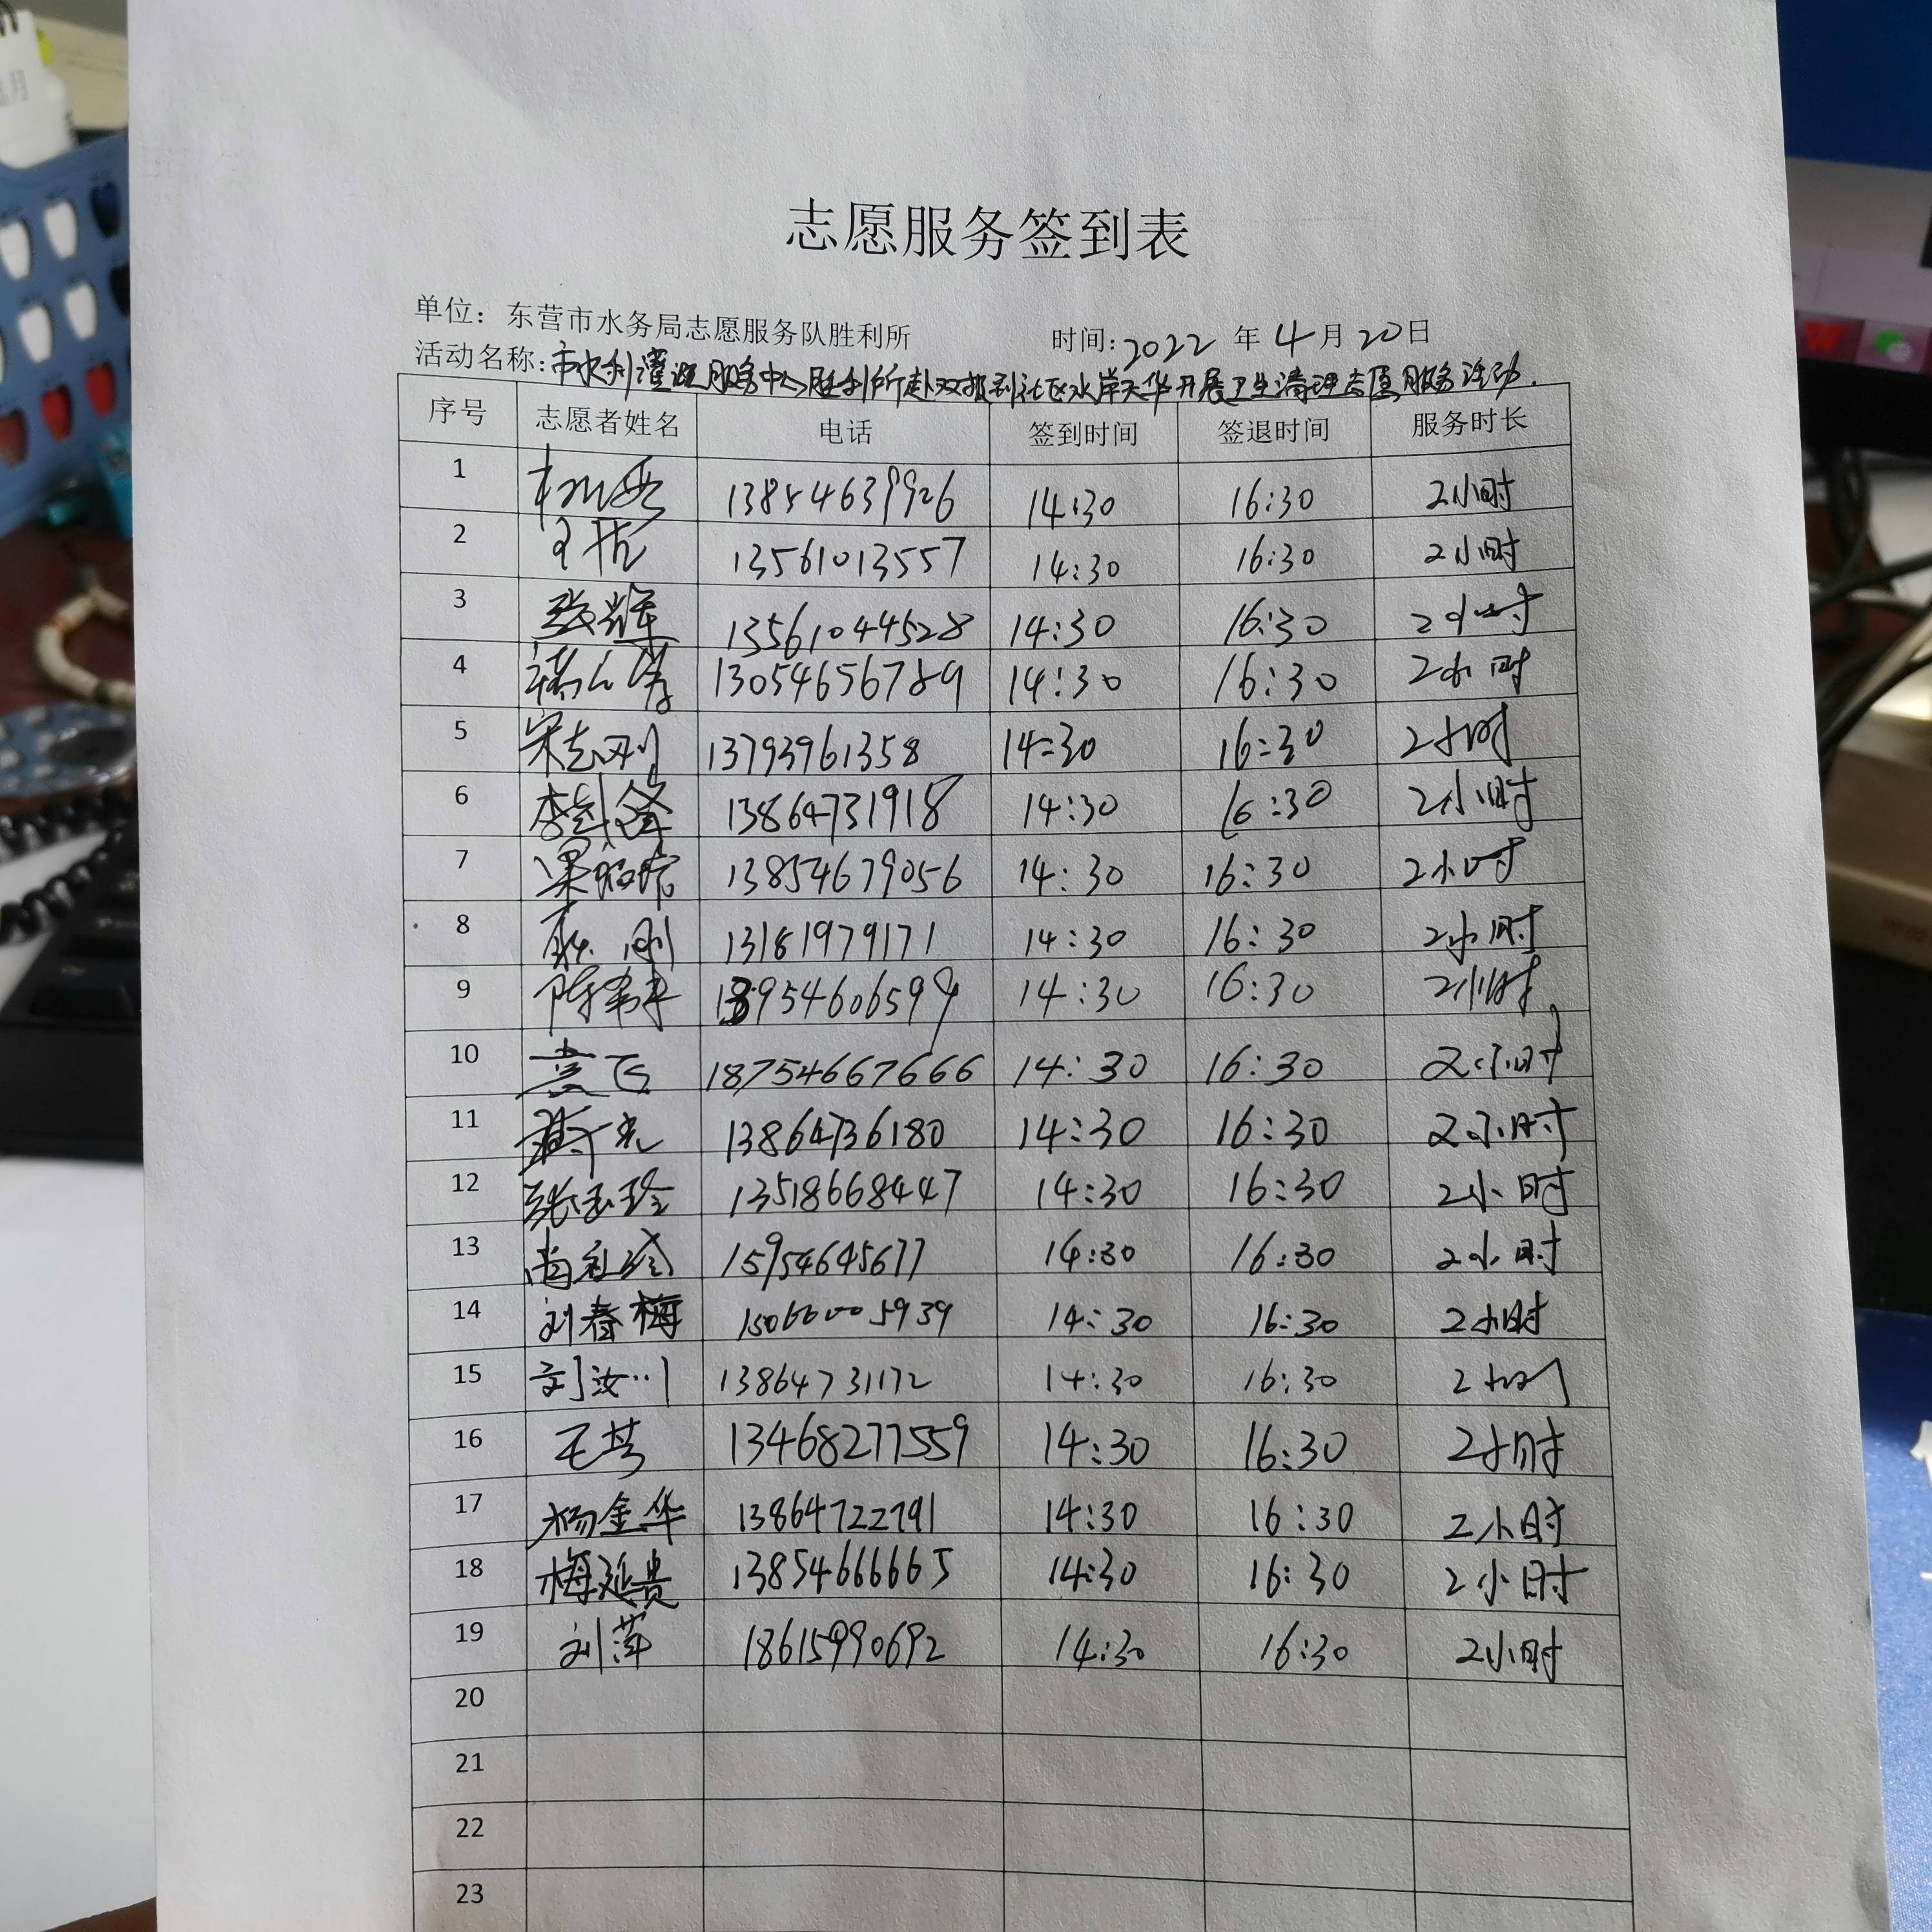 志愿服务签到表
单位：东营市水务局志愿服务队胜利所 时间:2022年4月20日
活动名称:市水利灌溉服务中心胜利所赴双报到社区水岸天华开展卫生清理志愿服务活动.
序号 志愿者姓名 电话 签到时间 签退时间 服务时长
1 13854639926 14:30 16:30 2小时
2 13561013557 14:30 16:30 2小时
3 张辉 13561044528 14:30 16:30 2小时
4 13054656789 14:30 16:30 2小时
5 宋志刚 13793961358 14:30 16:30 2小时
6 李剑锋 13864731918 14:30 16:30 2小时
7 13854679056 14:30 16:30 2小时
8 刚 13181979171 14:30 16:30 2小时
9 陈 13954606599 14:30 16:30 2小时
10 袁飞 18754667666 14:30 16:30 2小时
11 13864736180 14:30 16:30 2小时
12 张玉玲 13518668447 14:30 16:30 2小时
13 尚 15954645677 14:30 16:30 2小时
14 刘春梅 15066005939 14:30 16:30 2小时
15 刘汝川 13864731172 14:30 16:30 2小时
16 王芳 13468277559 14:30 16:30 2小时
17 杨金华 13864722791 14:30 16:30 2小时
18 梅延贵 13854666665 14:30 16:30 2小时
19 刘萍 18615990692 14:30 16:30 2小时
20
21
22
23